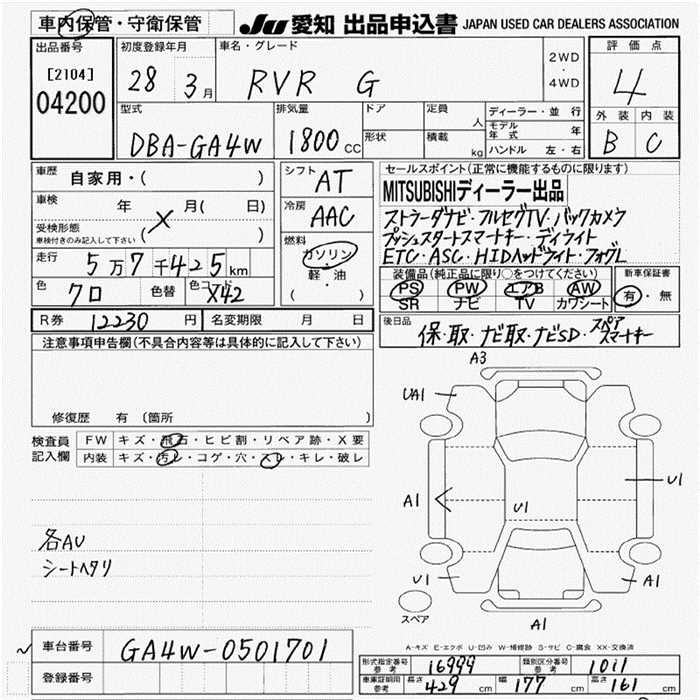 車内保管・守衛保管
JU 愛知 出品申込書 JAPAN USED CAR DEALERS ASSOCIATION
出品番号
[2104]
04200
初度登録年月
28 3月
車名・グレード
RVR G
2WD
・
4WD
評価点
4
外装 内装
B C
型式
DBA-GA4W
排気量
1800cc
ドア
形状
定員 人
積載 kg
ディーラー・並行
モデル年式 年
ハンドル 左・右
車歴 自家用・( )
車検 年 月( 日)
受検形態
車検付きのみ記入して下さい ( )
X
走行 5万7千425km
色 クロ 色替 色コード X42
R券 12230円 名変期限 月 日
シフト AT
冷房 AAC
燃料
ガソリン
・
軽・油
( )
セールスポイント(正常に機能するものに限ります)
MITSUBISHIディーラー出品
ストラーダナビ・フルセグTV・バックカメラ
プッシュスタートスマートキー・デイライト
ETC・ASC・HIDヘッドライト・フォグL
装備品(純正品に限り○をつけてください)
PS PW エアB AW
SR ナビ TV カワシート
新車保証書
有・無
後日品
保・取・ナビ取・ナビSD・スペアスマートキー
注意事項申告欄(不具合内容等は具体的に記入して下さい)
修復歴 有 (箇所 )
検査員
記入欄
FW キズ・飛石・ヒビ割・リペア跡・X要
内装 キズ・汚レ・コゲ・穴・スレ・キレ・破レ
各AU
シートヘタリ
A3
UA1
A1
U1
U1
U1
A1
スペア
A1
A-キズ E-エクボ U-凹み W-補修跡 S-サビ C-腐食 XX-交換済
車台番号 GA4W-0501701
登録番号
形式指定番号 参考 16999
類別区分番号 参考 1011
車庫証明用 参考 長さ 429cm 幅 177cm 高さ 161cm